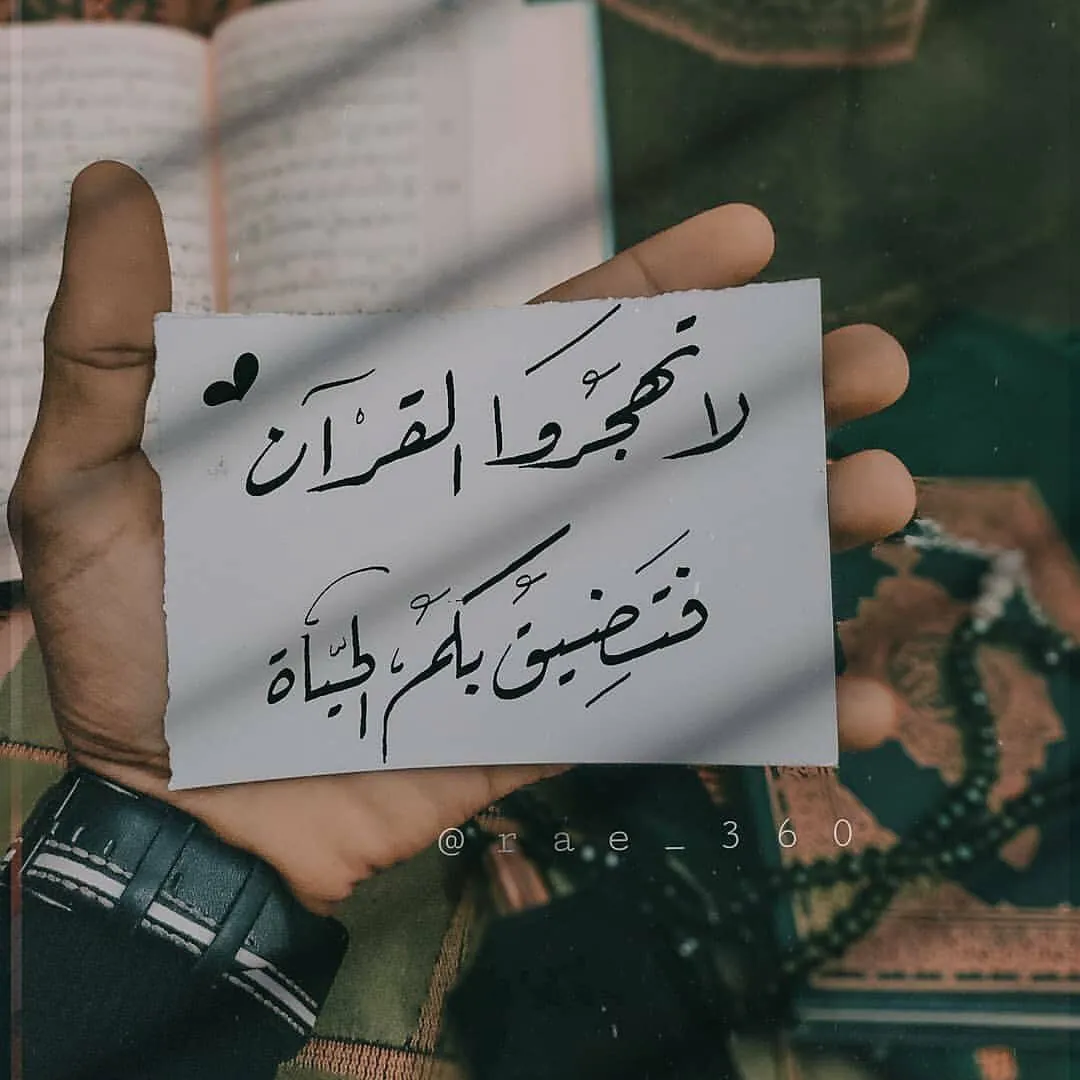 لا تهجُروا القرْآن
فتَضِيقُ بكمُ الحيَاة
@rae_360